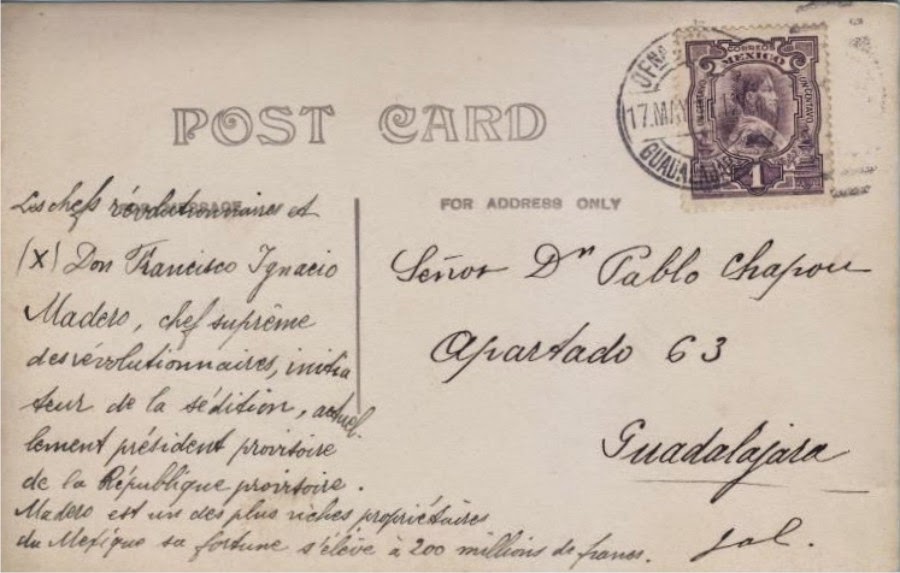 POST CARD
FOR MESSAGE
FOR ADDRESS ONLY
CORREOS
MEXICO
UN CENTAVO
1
17.MAY
GUADALAJAR
Les chefs révolutionnaires et
(X) Don Francisco Ignacio
Madero, chef suprême
des révolutionnaires, initia
teur de la sédition, actuel.
lement président provisoire
de la République provisoire.
Madero est un des plus riches propriétaires
du Mexique sa fortune s'élève à 200 millions de francs.
Señor Dn Pablo Chapon
Apartado 63
Guadalajara
Jal.